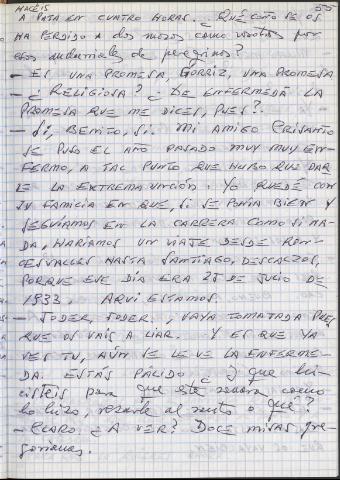 HACÉIS 55
A PATA EN CUATRO HORAS. ¿QUÉ COÑO SE OS
HA PERDIDO A DOS MOZOS COMO VOSOTROS POR
esos andurriales de peregrinos?
- ES UNA PROMESA, GORRIZ, UNA PROMESA
- ¿RELIGIOSA? ¿DE ENFERMEDÁ LA
PROMESA QUE ME DICES, PUES?.
- Sí, BENITO, Sí. MI AMIGO CRISANTO
SE PUSO EL AÑO PASADO MUY MUY EN-
FERMO, A TAL PUNTO QUE HUBO QUE DAR
LE LA EXTREMAUNCIÓN. YO QUEDÉ CON
SU FAMILIA EN QUE, SI SE PONÍA BIEN Y
SEGUÍAMOS EN LA CARRERA COMO SI NA-
DA, HARÍAMOS UN VIAJE DESDE RON-
CESVALLES HASTA SANTIAGO, DESCALZOS,
PORQUE ESE DÍA ERA 25 DE JULIO DE
1933. AQUÍ ESTAMOS.
- JODER, JODER. ¡VAYA TOMATADA PUES
QUE OS VAIS A LIAR. Y ES QUE YA
VES TU, AÚN SE LE VE LA ENFERME-
DA. ESTÁS PÁLIDO. ¿Y que hi-
cisteis para que este sanara como
lo hizo, rezarle al santo o qué?
- CLARO ¿A VER? DOCE misas gre-
gorianas.